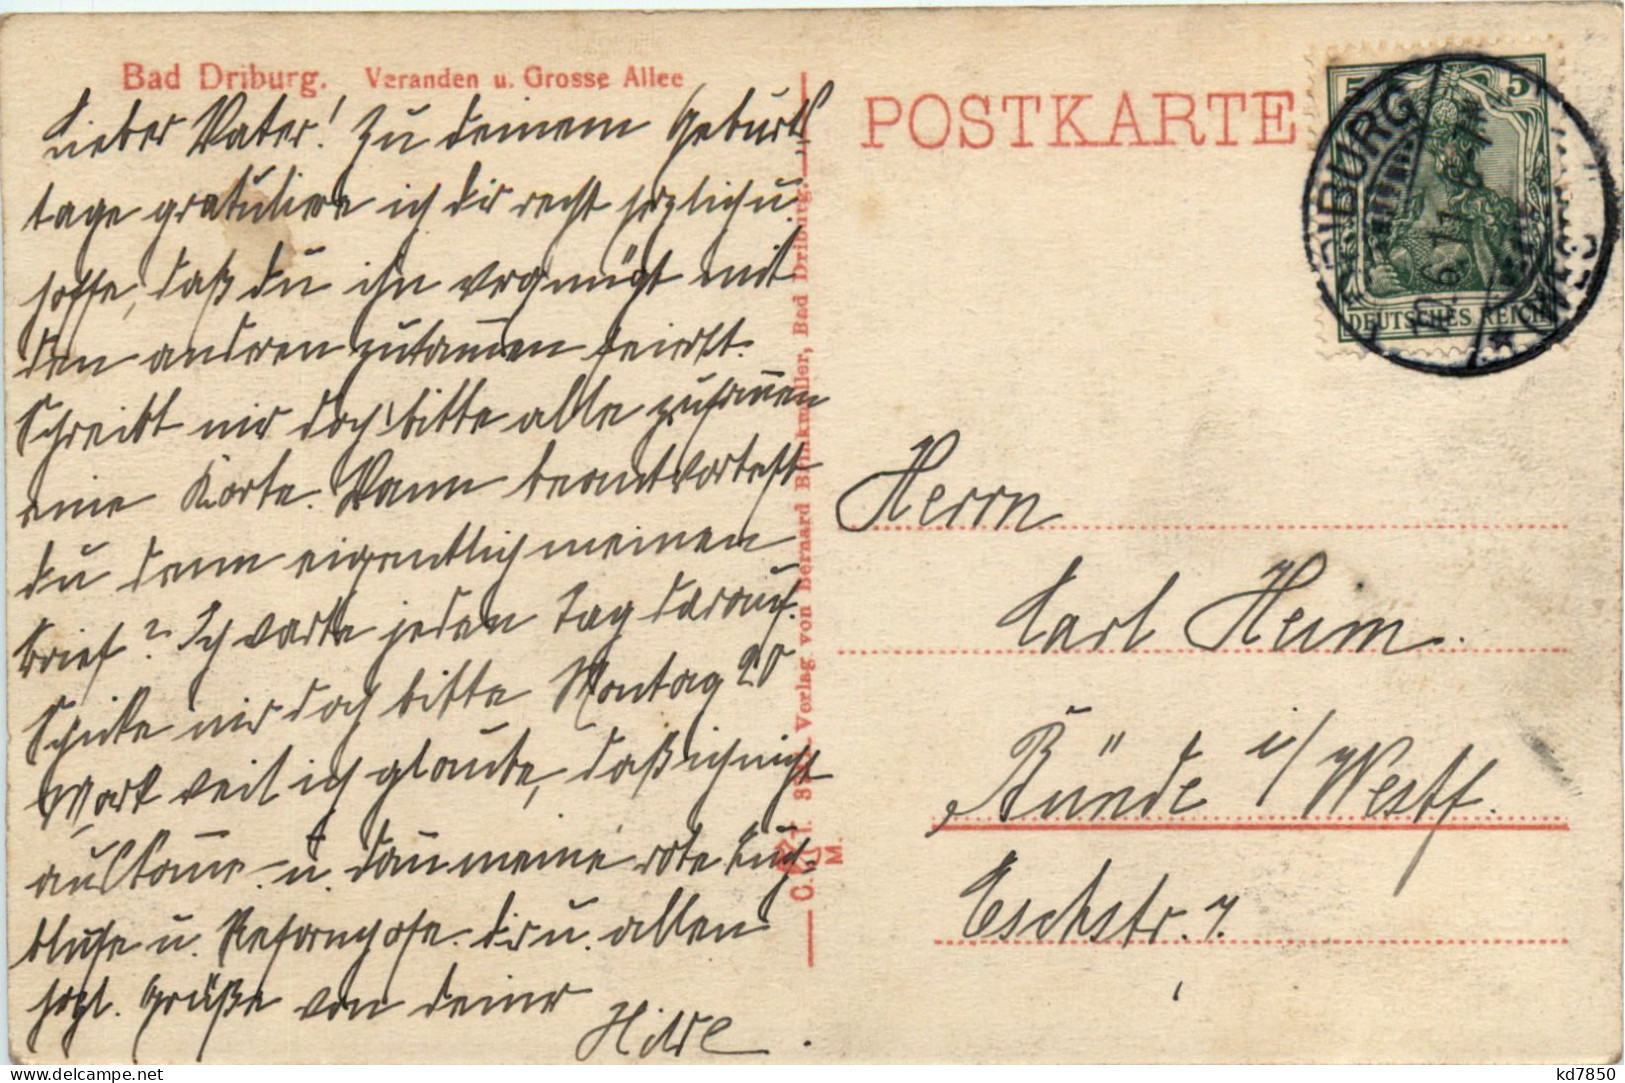 Bad Driburg. Veranden u. Grosse Allee
Lieber Vater! Zu deinem Geburts
tage gratuliere ich dir recht herzlich u.
hoffe, daß du ihn vergnügt mit
den anderen zusammen feierst.
Schreibt mir doch bitte alle zusammen
eine Karte. Wann beantwortest
du denn eigentlich meinen
Brief? Ich warte jeden Tag darauf.
Schicke mir doch bitte Montag 20
Mark weil ich glaube, daß ich nicht
auskomme. u. dann meine rote
bluse u. Reformhose. dir u. allen
hrzl. Grüße von deiner
Hilde.
Verlag von Bernard Brinkmöller, Bad Driburg.
M.
POSTKARTE
5 5
DEUTSCHES REICH
DRIBURG
6.11. 6-7N
* (WESTF.)
Herrn
Carl Heim.
Bünde i/Westf.
Eschstr. 7.
www.delcampe.net
kd7850